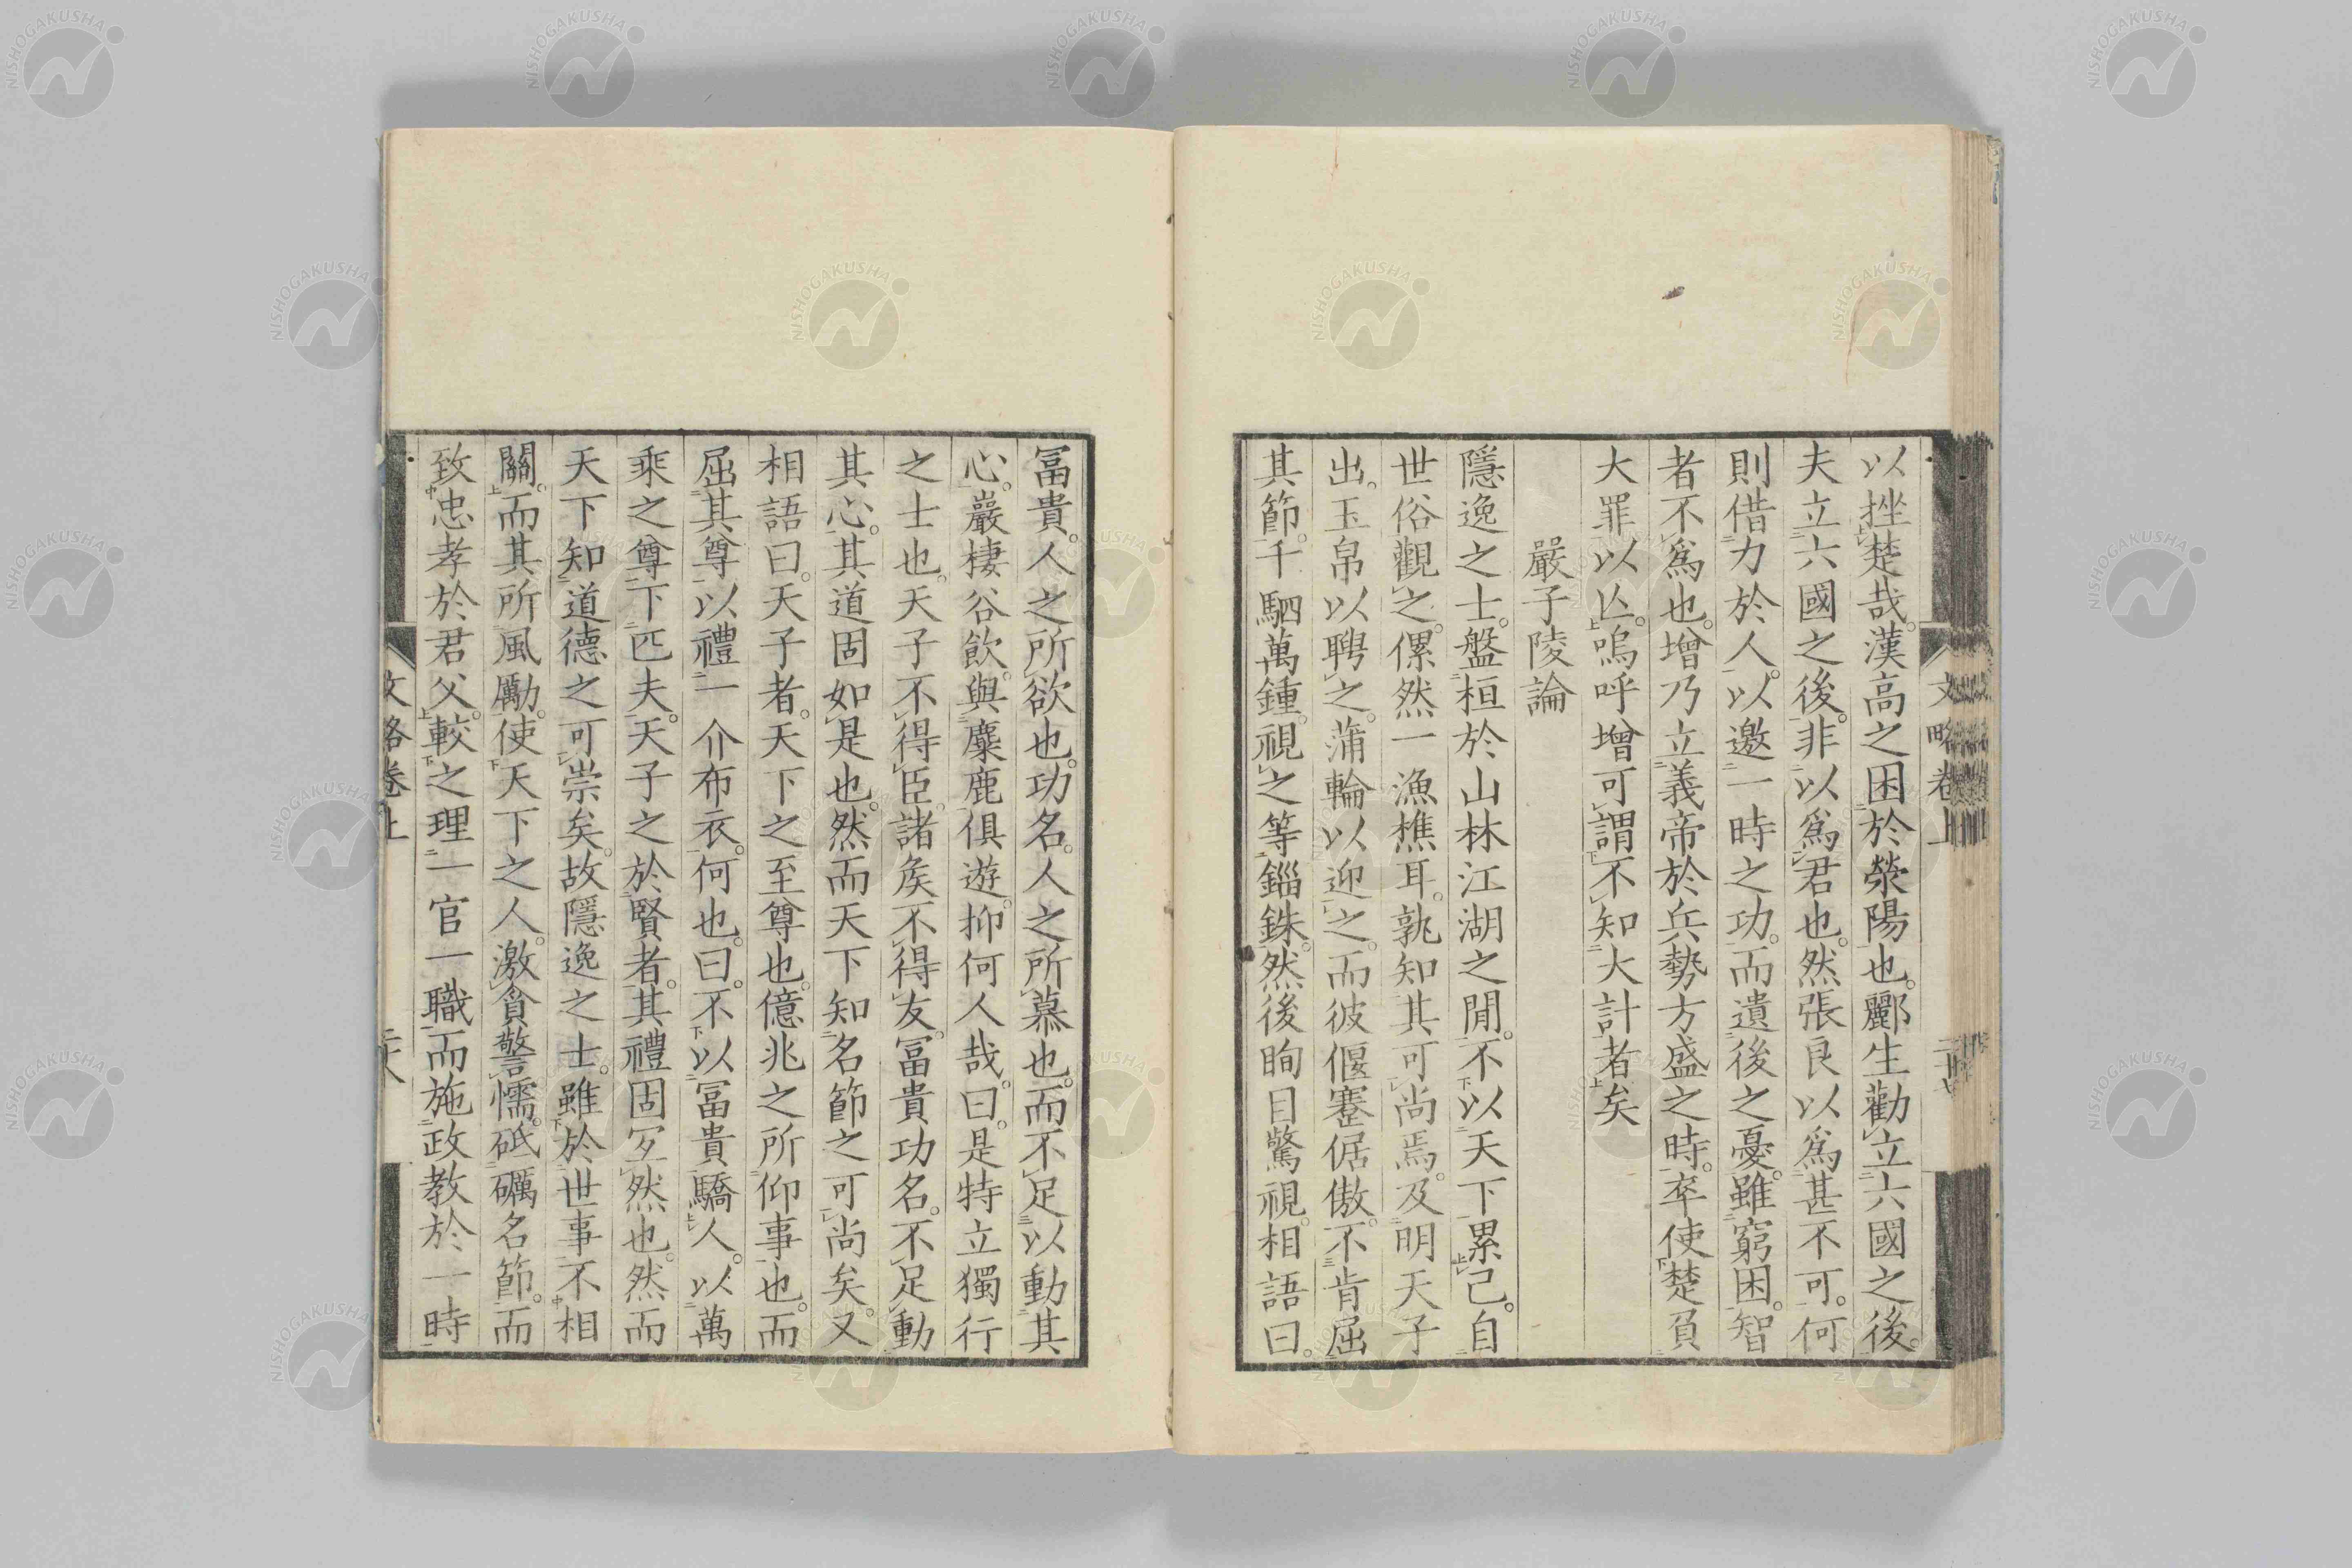 以挫楚哉。漢高之困於滎陽也。酈生勸立六國之後。
夫立六國之後。非以爲君也。然張良以爲甚不可。何
則借力於人。以邀一時之功。而遺後之憂。雖窮困。智
者不爲也。增乃立義帝於兵勢方盛之時。卒使楚負
大罪以亾。嗚呼增可謂不知大計者矣
嚴子陵論
隱逸之士。盤桓於山林江湖之閒。不以天下累己。自
世俗觀之。傫然一漁樵耳。孰知其可尚焉。及明天子
出。玉帛以聘之。蒲輪以迎之。而彼偃蹇倨傲。不肯屈
其節。千駟萬鍾。視之等錙銖。然後眴目驚視。相語曰。
冨貴。人之所欲也。功名。人之所慕也。而不足以動其
心。巖棲谷飲。與麋鹿俱遊。抑何人哉。曰。是特立獨行
之士也。天子不得臣。諸矦不得友。冨貴功名。不足動
其心。其道固如是也。然而天下知名節之可尚矣。又
相語曰。天子者。天下之至尊也。億兆之所仰事也。而
屈其尊以禮一介布衣。何也。曰。不以冨貴驕人。以萬
乘之尊下匹夫。天子之於賢者。其禮固冝然也。然而
天下知道德之可崇矣。故隱逸之士。雖於世事不相
關。而其所風勵。使天下之人。激貪警懦。砥礪名節。而
致忠孝於君父。較之理一官一職。而施政教於一時
文略卷上
文略卷上